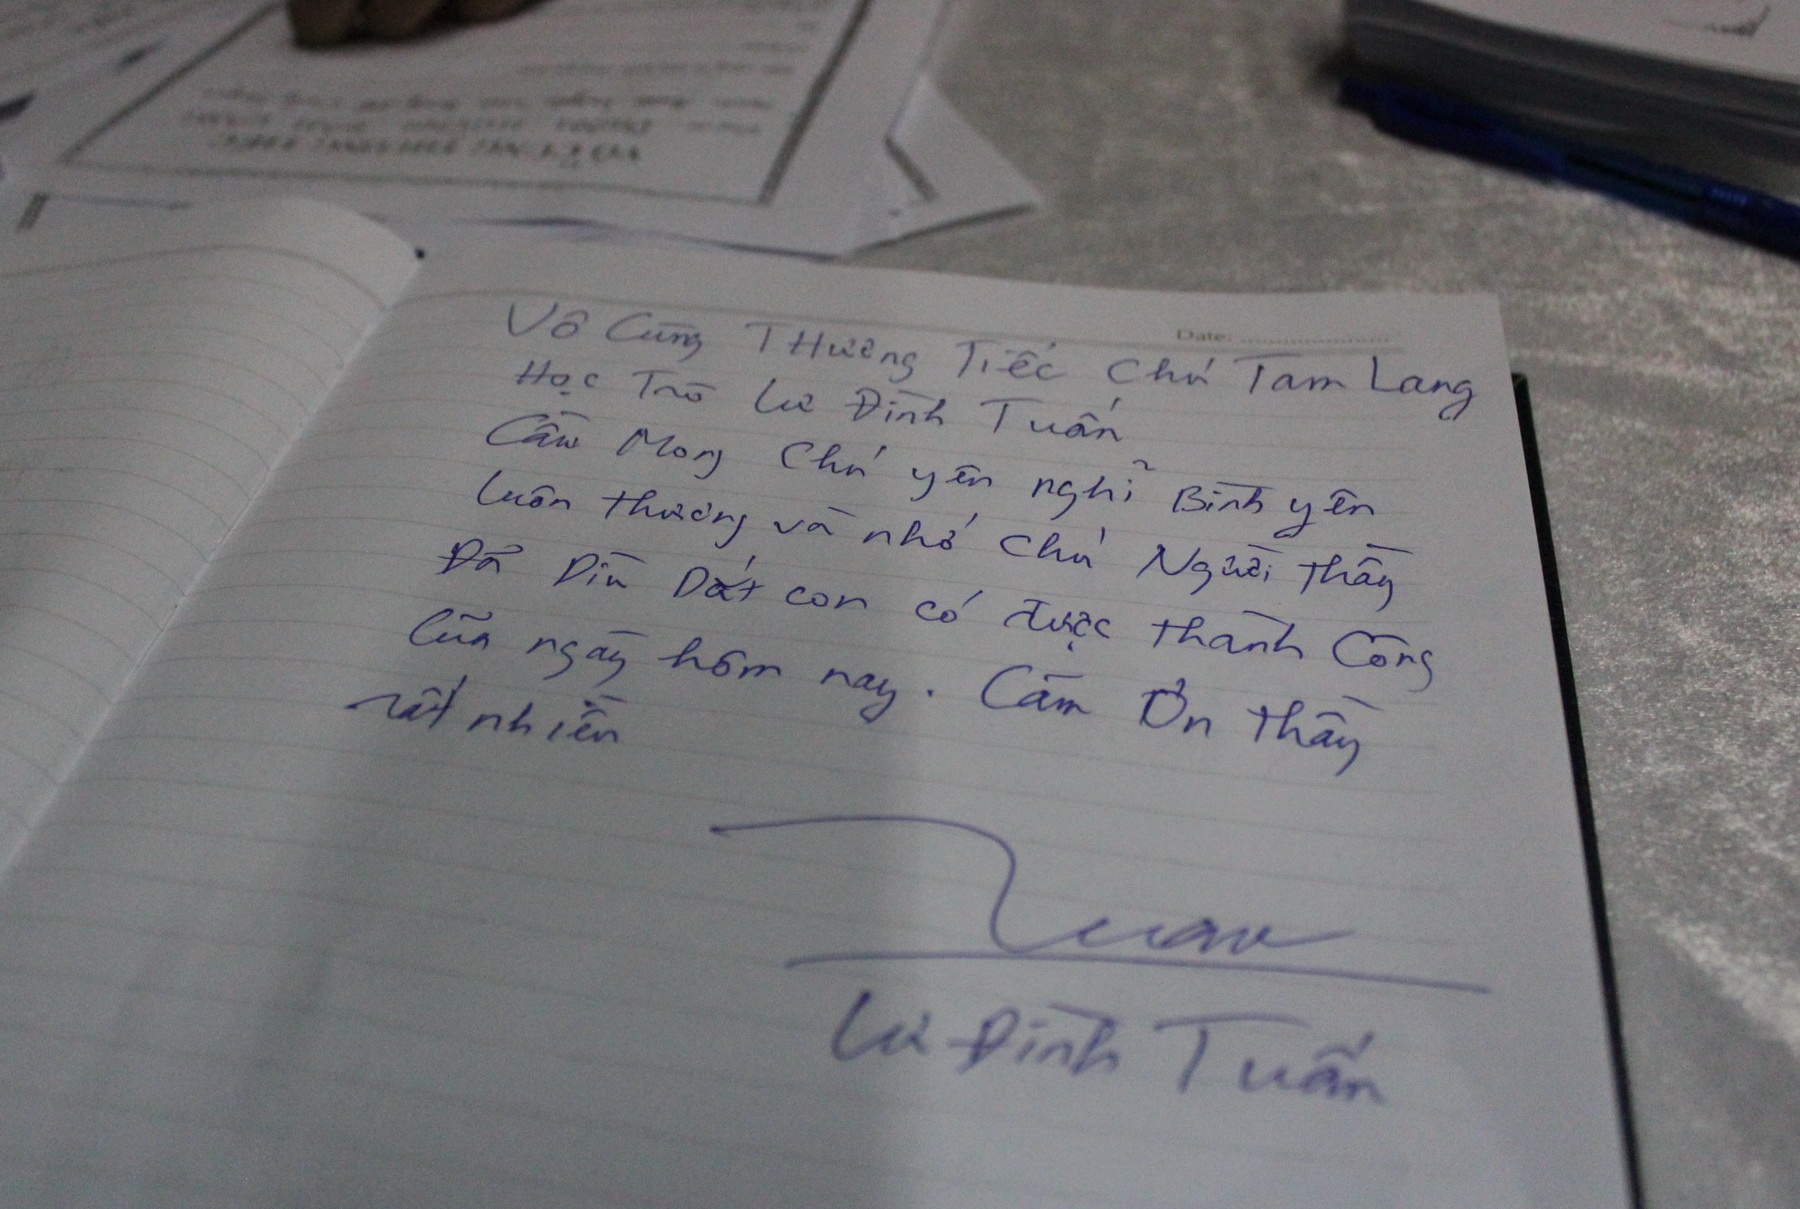 Date:
Vô Cùng Thương Tiếc Chú Tam Lang
Học Trò Lư Đình Tuấn
Cầu Mong Chú yên nghĩ Bình yên
Luôn thương và nhớ chú Người thầy
Đã Dìu Dắt con có được thành Công
Của ngày hôm nay. Cảm Ơn thầy
rất nhiều
Tuấn
Lư Đình Tuấn